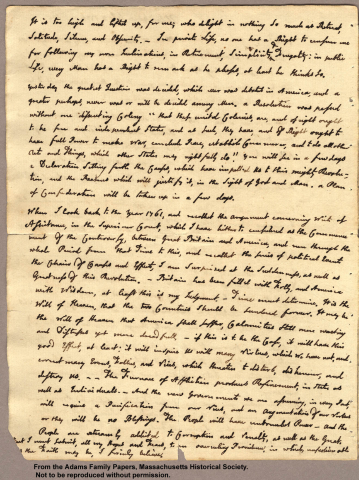 It is too high and lifted up, for me, who delight in nothing so much as Retreat,
Solitude, Silence, and Obscurity. In private Life, no one has a Right to censure me
for following my own Inclinations, in Retirement, Simplicity, Frugality: in public
Life, every Man has a Right to remark as he pleases, at least he thinks so.
Yesterday the greatest Question was decided, which ever was debated in America, and a
greater perhaps, never was or will be decided among Men. a Resolution was passed
without one dissenting Colony "that these united Colonies, are, and of right ought
to be free and independent States, and as such, they have, and of Right ought to
have full Power to make War, conclude Peace, establish Commerce, and to do all other
Acts and Things, which other States may rightfully do." You will see in a few days
a Declaration setting forth the Causes, which have impell'd Us to this mighty Revolu-
tion, and the Reasons which will justify it, in the Sight of God and Man. a Plan
of Confederation will be taken up in a few days.
When I look back to the Year 1761, and recollect the Argument concerning Writs of
Assistance, in the Superiour Court, which I have hitherto considered as the Commence-
ment of the Controversy, between Great Britain and America, and run through the
whole Period from that Time to this, and recollect the series of political Events,
the Chain of Causes and Effects, I am surprised at the Suddenness, as well as
Greatness of this Revolution. Britain has been fill'd with Folly, and America
with Wisdom, at least this is my Judgment. Time must determine. It is the
Will of Heaven, that the two Countries should be sundered forever. It may be
the Will of Heaven that America shall suffer Calamities still more wasting
and Distresses yet more dreadfull. if this is to be the Case, it will have this
good Effect, at least: it will inspire Us with many Virtues, which We have not, and
correct many Errors, Follies, and Vices, which threaten to disturb, dishonour, and
destroy Us. The Furnace of Affliction produces Refinement, in States as
well as Individuals. And the new Governments we are assuming, in every Part,
will require a Purification from our Vices, and an Augmentation of our Virtues
or they will be no Blessings. The People will have unbounded Power. And the
People are extreamly addicted to Corruption and Venality, as well as the Great.
But I must submit all my Hopes and Fears, to an overruling Providence, in which, unfashionable as
the Faith may be, I firmly believe.
From the Adams Family Papers, Massachusetts Historical Society.
Not to be reproduced without permission.